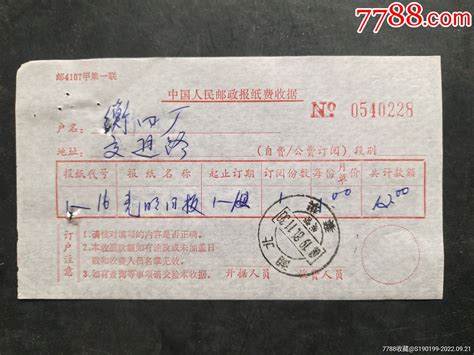 7788.com
邮4107甲第一联
中国人民邮政报纸费收据
№ 0540228
户名:
地址: (自费/公费订阅) 段别
报纸代号 报纸名称 起止订期 订阅份数 每份月单价 共计款额
1-16 光明日报 1 00
订户注意
1.请核对填写的内容是否正确。
2.本收据款额如有涂改或未加盖日
戳和收费人员名章无效。
3.如有查询等事项请交验本收据。 开据人员 收费人员
7788收藏@S190199-2022.09.21